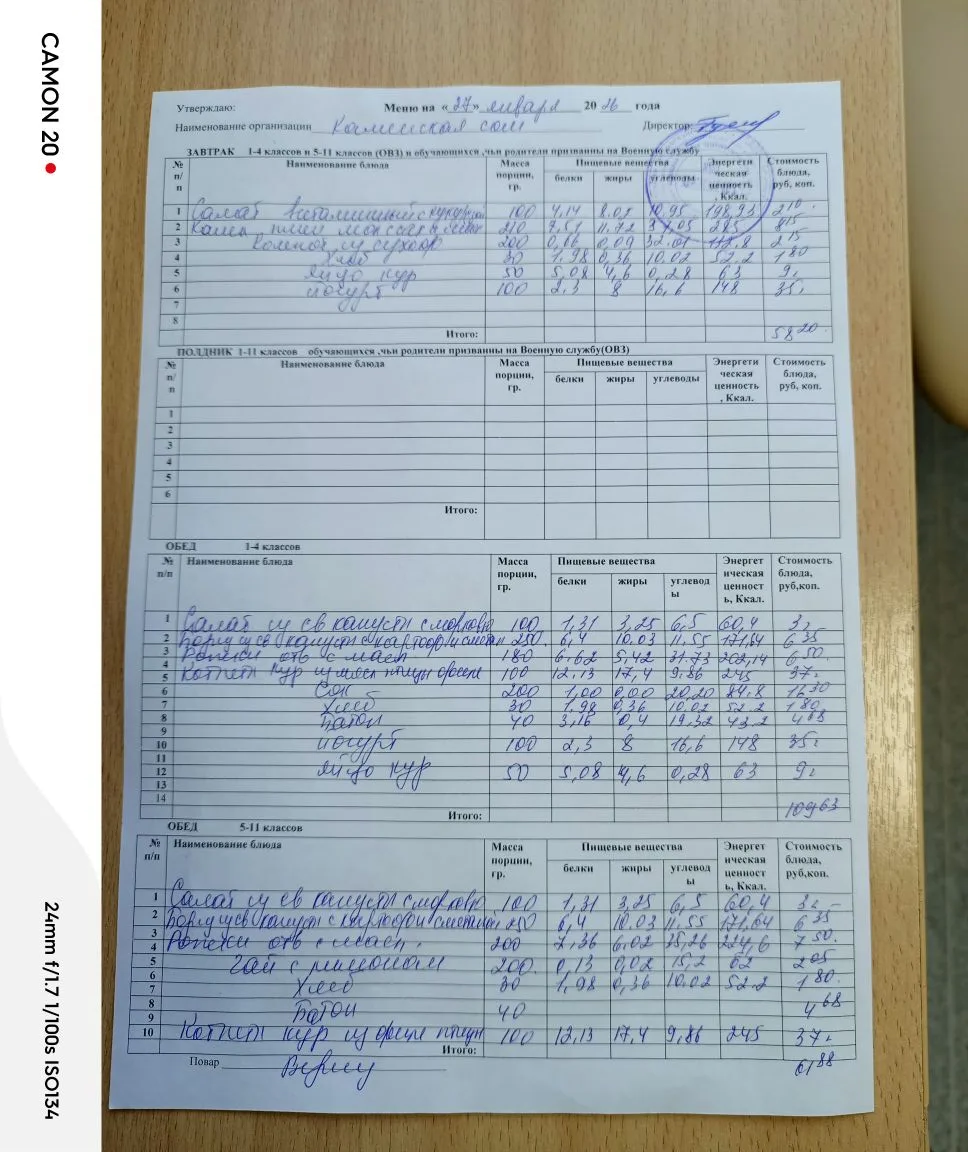 CAMON 20
24mm f/1.7 1/100s ISO134
Утверждаю: Меню на «27» января 2026 года
Наименование организации Каменская сош Директор:
ЗАВТРАК 1-4 классов и 5-11 классов (ОВЗ) и обучающихся ,чьи родители призваны на Военную службу
№ п/п Наименование блюда Масса порции, гр. Пищевые вещества Энергетическая ценность, Ккал. Стоимость блюда, руб, коп.
белки жиры углеводы
1 Салат витаминный с 100 4,14 8.02 10,95 198,93 2 10
2 Каша 210 7,51 11,72 37,05 285 8 15
3 200 0,66 0,09 32.01 8 2 15
4 Хлеб 30 1,98 0,36 10.02 52.2 1 80
5 Яйцо кур 50 5,08 4,6 0,28 63 9.
6 йогурт 100 2,3 8 16,6 148 35.
7
8
Итого: 58 20
ПОЛДНИК 1-11 классов обучающихся ,чьи родители призваны на Военную службу(ОВЗ)
№ п/п Наименование блюда Масса порции, гр. Пищевые вещества Энергетическая ценность, Ккал. Стоимость блюда, руб, коп.
белки жиры углеводы
1
2
3
4
5
6
Итого:
ОБЕД 1-4 классов
№ п/п Наименование блюда Масса порции, гр. Пищевые вещества Энергетическая ценность, Ккал. Стоимость блюда, руб,коп.
белки жиры углеводы
1 Салат из св капусты с морковью 100 1,31 3,25 6,5 60,4 3
2 Борщ из св капусты с картоф и сметан 250 6,4 10.03 11.55 171,64 6 35
3 Рожки отв с масл 180 6.62 5,42 31.73 202,14 6 50
4
5 Котлет кур 100 12,13 17,4 9,86 245 37
6 Сок 200 1,00 0,00 20,20 84.8 16 30
7 Хлеб 30 1.98 0,36 10,02 52.2 1 80
8 Батон 40 3,16 0,4 19,32 43.2 4 68
9
10 йогурт 100 2,3 8 16,6 148 35
11
12 Яйцо кур 50 5,08 4,6 0,28 63 9
13
14
Итого: 109 63
ОБЕД 5-11 классов
№ п/п Наименование блюда Масса порции, гр. Пищевые вещества Энергетическая ценность, Ккал. Стоимость блюда, руб,коп.
белки жиры углеводы
1 Салат из св капусты с морковью 100 1,31 3,25 6,5 60,4 3
2 Борщ из св капусты с картоф и сметан 250 6,4 10.03 11.55 171,64 6 35
3
4 Рожки отв с масл. 200 7,36 6.02 35,26 224,6 7 50
5 Чай с лимоном 200 0,13 0,02 15,2 62 2 05
6
7 Хлеб 30 1,98 0,36 10.02 52.2 1 80
8
9 Батон 40 4 68
10 Котлет кур 100 12,13 17,4 9,86 245 37
Итого: 61 88
Повар